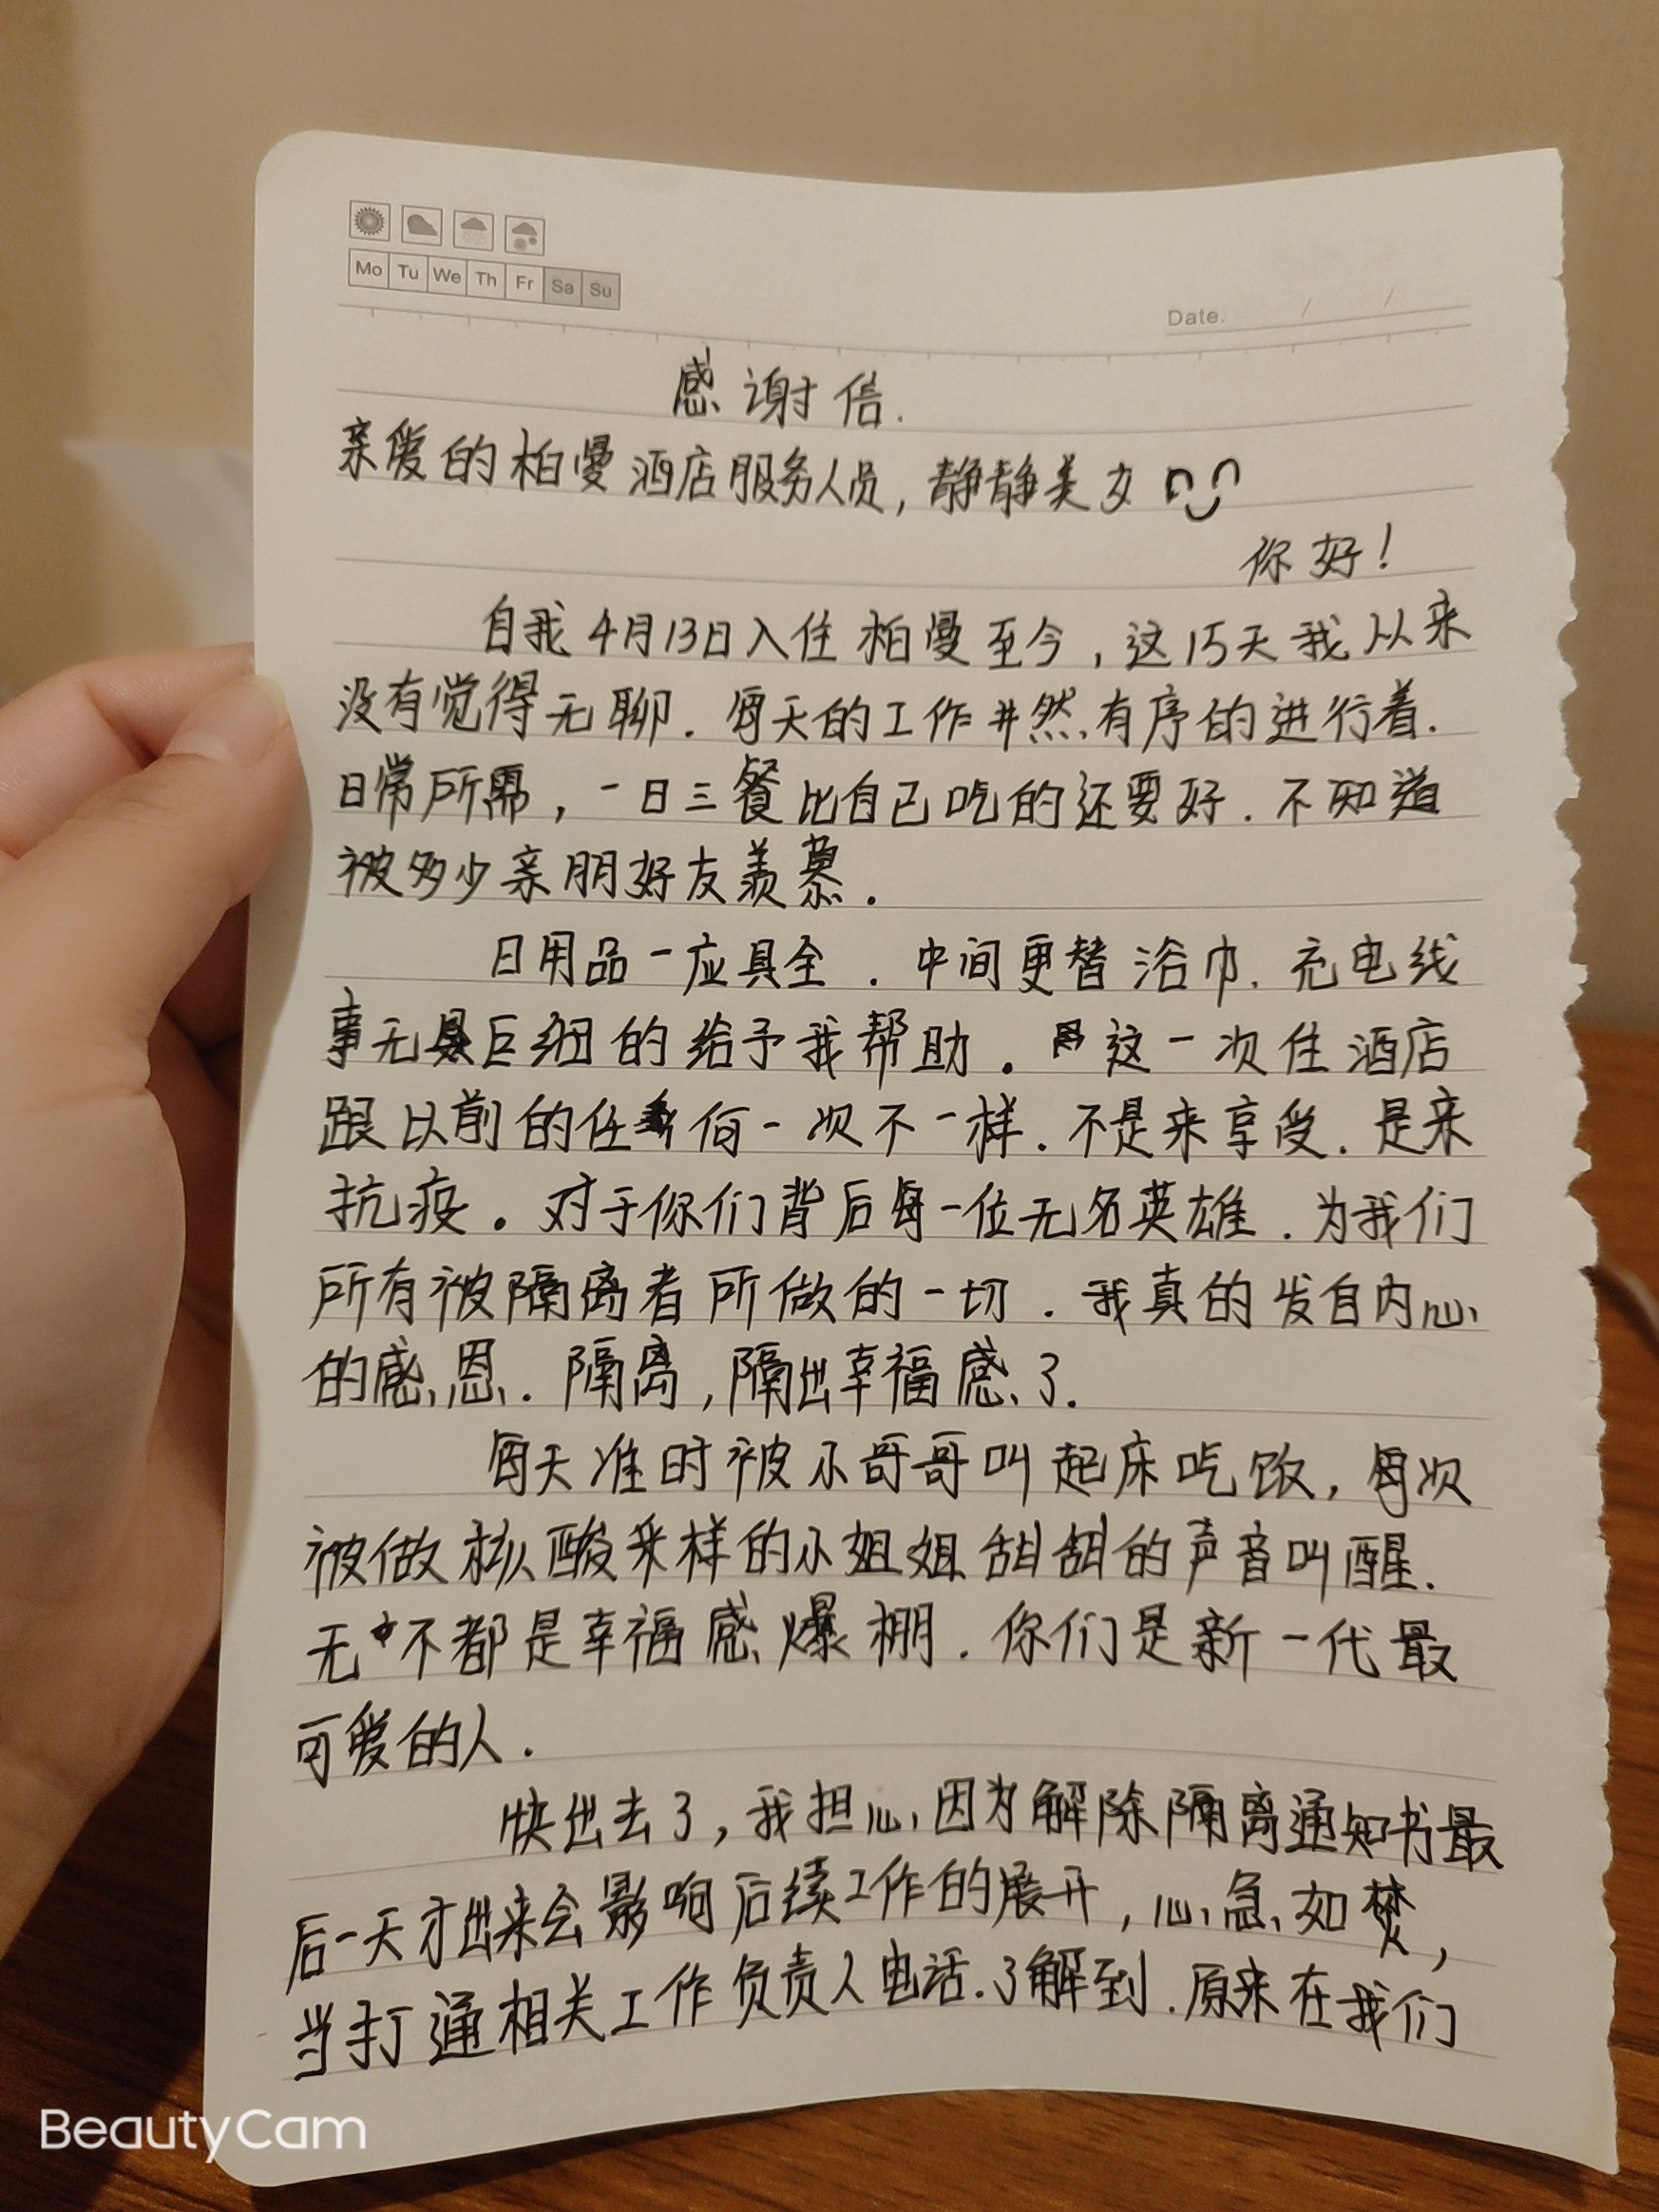 Mo Tu We Th Fr Sa Su
Date. / /
感谢信.
亲爱的柏曼酒店服务人员,静静美女
你好!
自我4月13日入住柏曼至今,这15天我从来
没有觉得无聊.每天的工作井然有序的进行着.
日常所需,一日三餐比自己吃的还要好.不知道
被多少亲朋好友羡慕.
日用品一应具全.中间更替浴巾.充电线
事无巨细的给予我帮助.这一次住酒店
跟以前的任何一次不一样.不是来享受.是来
抗疫.对于你们背后每一位无名英雄.为我们
所有被隔离者所做的一切.我真的发自内心
的感恩.隔离,隔出幸福感了.
每天准时被小哥哥叫起床吃饭,每次
被做核酸采样的小姐姐甜甜的声音叫醒.
无不都是幸福感爆棚.你们是新一代最
可爱的人.
快出去了,我担心因为解除隔离通知书最
后一天才出来会影响后续工作的展开,心急如焚,
当打通相关工作负责人电话.了解到.原来在我们
BeautyCam